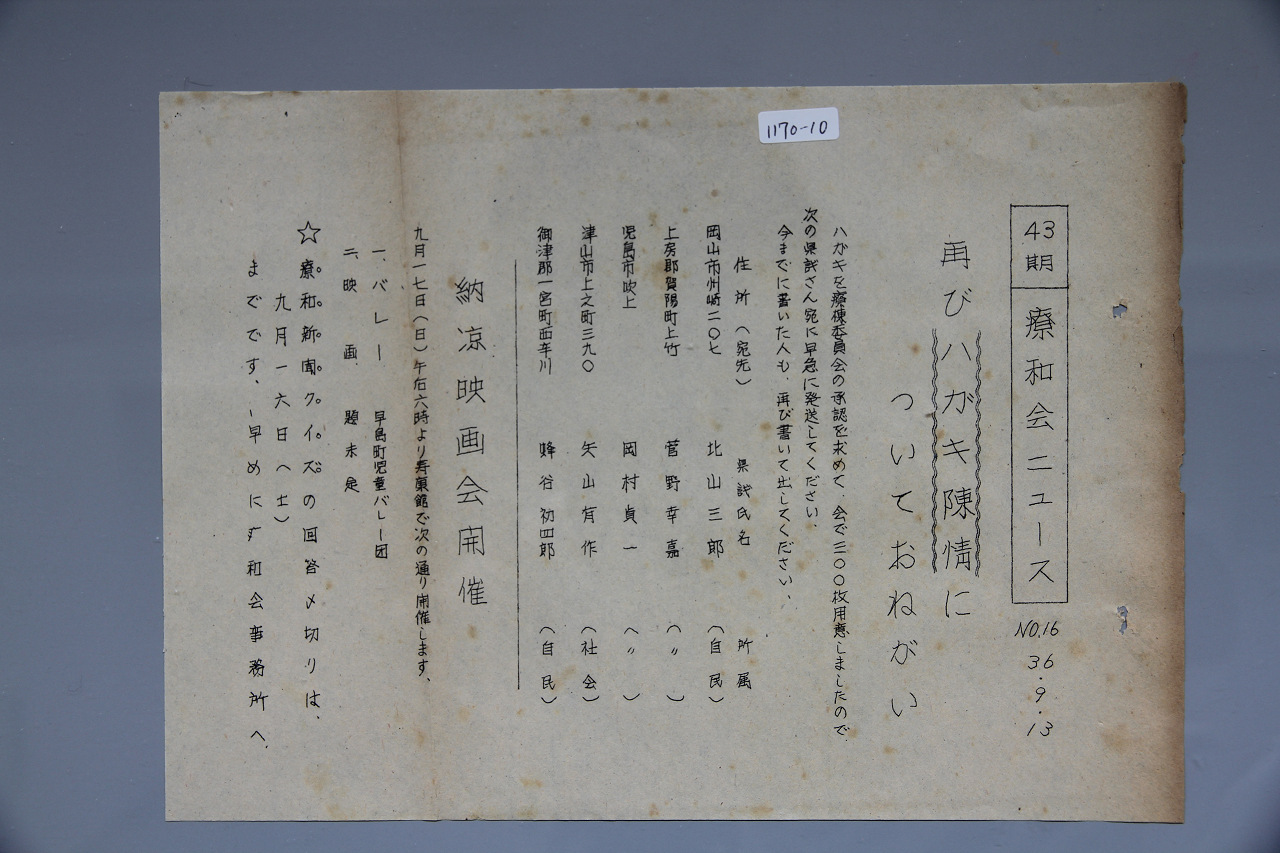 1170-10
43期 療和会ニュース
NO.16
36.9.13
再びハガキ陳情に
ついておねがい
ハガキを療棟委員会の承認を求めて、会で三〇〇枚用意しましたので
次の県議さん宛に早急に発送してください、
今までに書いた人も、再び書いて出してください、
住所(宛先) 県議氏名 所属
岡山市州崎二〇七 北山三郎 (自民)
上房郡賀陽町上竹 菅野幸嘉 (〃)
児島市吹上 岡村貞一 (〃)
津山市上之町三九〇 矢山有作 (社会)
御津郡一宮町西辛川 蜂谷初四郎 (自民)
納凉映画会開催
九月一七日(日)午后六時より寿薬館で次の通り開催します、
一、バレー 早島町児童バレー団
二、映画 題未定
☆療和新聞クイズの回答〆切りは、
九月一六日(土)
までです、早めに 和会事務所へ、